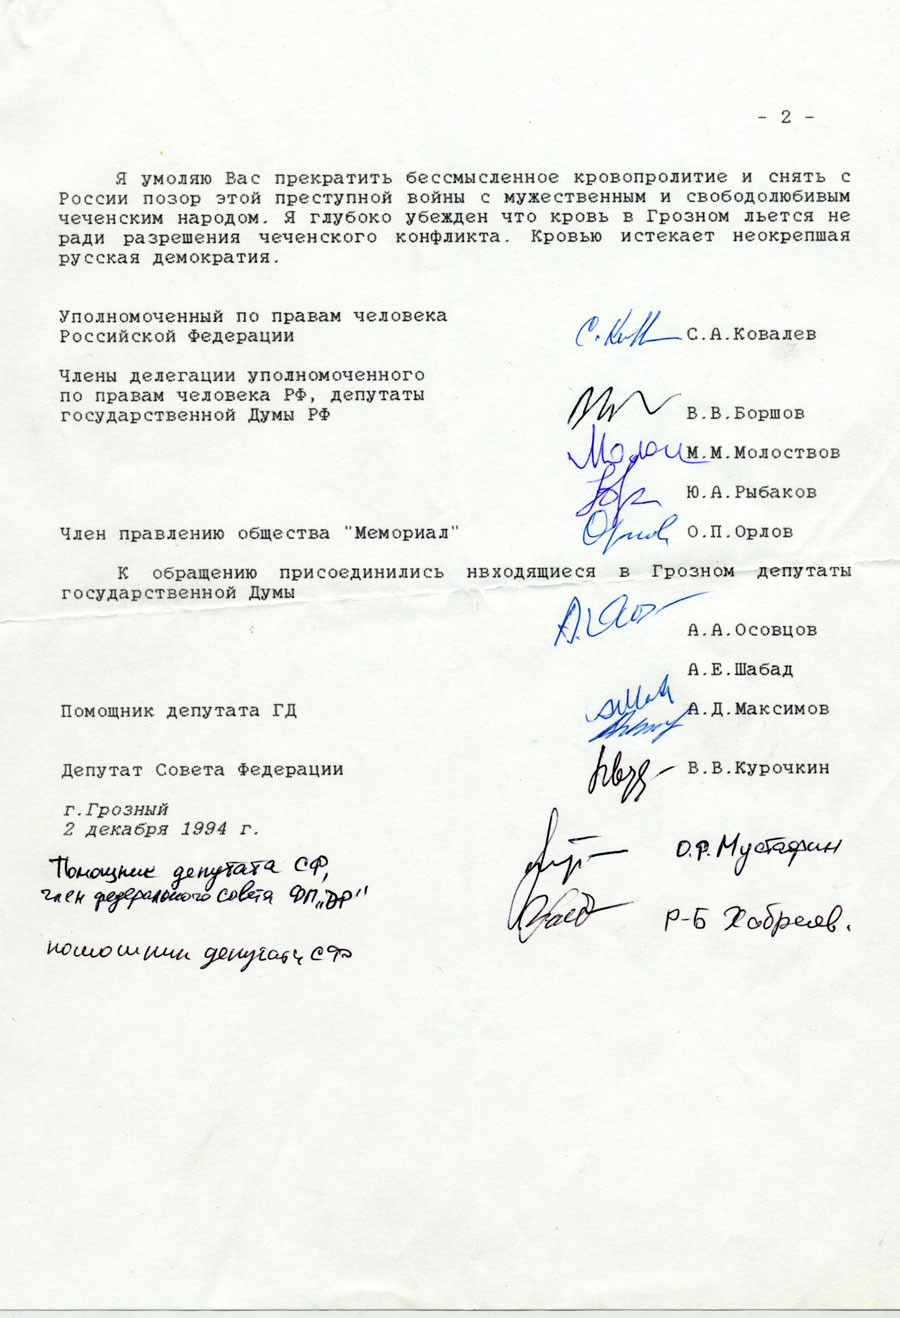 - 2 -
Я умоляю Вас прекратить бессмысленное кровопролитие и снять с
России позор этой преступной войны с мужественным и свободолюбивым
чеченским народом. Я глубоко убежден что кровь в Грозном льется не
ради разрешения чеченского конфликта. Кровью истекает неокрепшая
русская демократия.
Уполномоченный по правам человека
Российской Федерации С.А.Ковалев
Члены делегации уполномоченного
по правам человека РФ, депутаты
государственной Думы РФ В.В.Боршов
М.М.Молоствов
Ю.А.Рыбаков
Член правлению общества "Мемориал" О.П.Орлов
К обращению присоединились нвходящиеся в Грозном депутаты
государственной Думы
А.А.Осовцов
А.Е.Шабад
Помощник депутата ГД А.Д.Максимов
Депутат Совета Федерации В.В.Курочкин
г.Грозный
2 декабря 1994 г.
Помощник депутата СФ, О.Р.Мустафин
член федерального совета ДП„ДР"
Р-Б Хабреев.
помошник депутата СФ